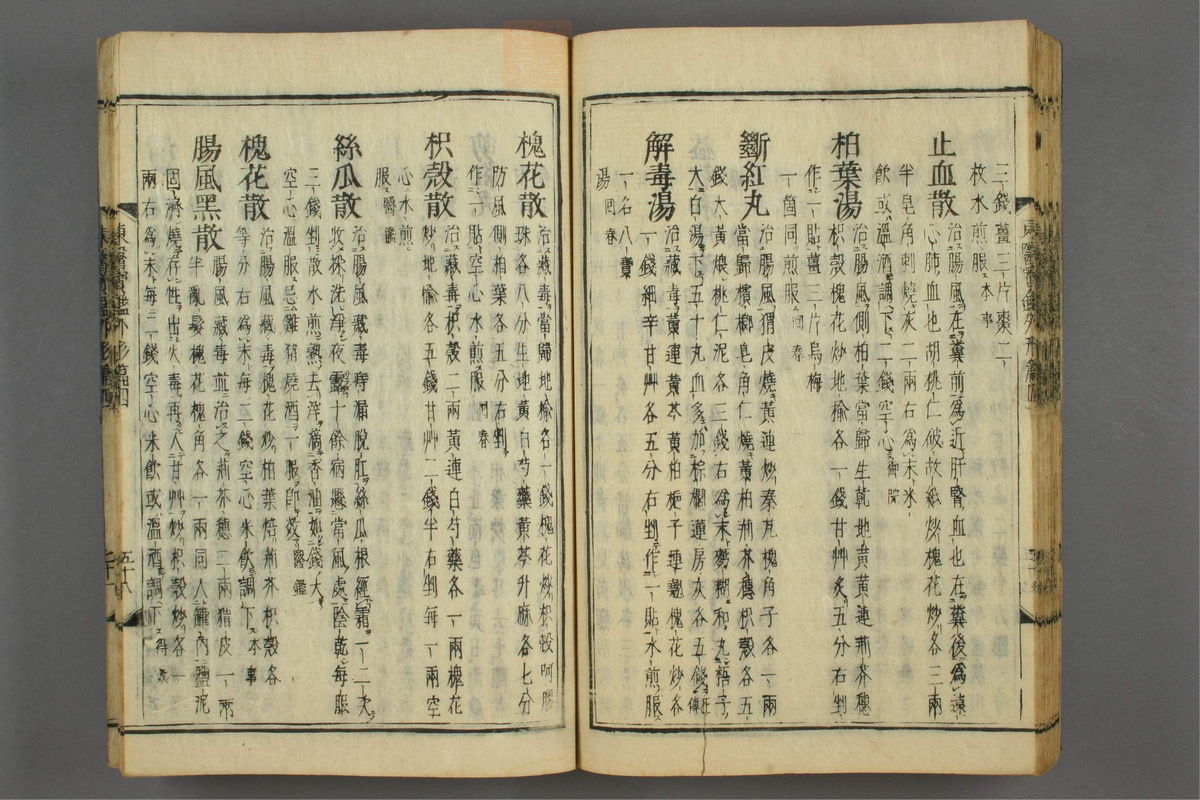 三錢薑三片棗二
枚水煎服 本事
止血散 治腸風在糞前爲近肝腎血也在糞後爲遠
心肺血也胡桃仁破故紙炒槐花炒各三兩
半皂角刺燒灰二兩右爲末米
飮或溫酒調下二錢空心 御院
柏葉湯 治腸風側柏葉當歸生乾地黃黃連荊芥穗
枳殼槐花炒地楡各一錢甘艸炙五分右剉
作一貼薑三片烏梅
一箇同煎服 回春
斷紅丸 治腸風猬皮燒黃連炒秦艽槐角子各一兩
當歸檳榔皂角仁燒黃柏荊芥穗枳殼各五
錢大黃煨桃仁泥各三錢右爲末麪糊和丸梧子
大白湯下五十丸血多加棕櫚蓮房灰各五錢 正傳
解毒湯 治藏毒黃連黃芩黃柏梔子連翹槐花炒各
一錢細辛甘艸各五分右剉作一貼水煎服
一名八寶
湯 回春
槐花散 治藏毒當歸地楡各一錢槐花炒枳殼阿膠
珠各八分生地黃白芍藥黃芩升麻各七分
防風側柏葉各五分右剉
作一貼空心水煎服 回春
枳殼散 治藏毒枳殼二兩黃連白芍藥各一兩槐花
炒地楡各五錢甘艸二錢半右剉每一兩空
心水煎
服 醫鑑
絲瓜散 治腸風藏毒痔漏脫肛絲瓜根經霜一二次
收採洗淨夜露十餘病懸當風處陰乾每服
三錢剉散水煎熟去滓滴香油如錢大
空心溫服忌雞猪燒酒一服卽效 醫鑑
槐花散 治腸風藏毒槐花炒柏葉焙荊芥枳殼各
等分右爲末每二錢空心米飮調下 本事
腸風黑散 腸風藏毒並治之荊芥穗二兩猬皮一兩
半亂髮槐花槐角各一兩同入罐內鹽泥
固濟燒存性出火毒再入甘艸炒枳殼炒各一
兩右爲末每二錢空心米飮或溫酒調下 得效
東醫寶鑑外形篇四
五十八